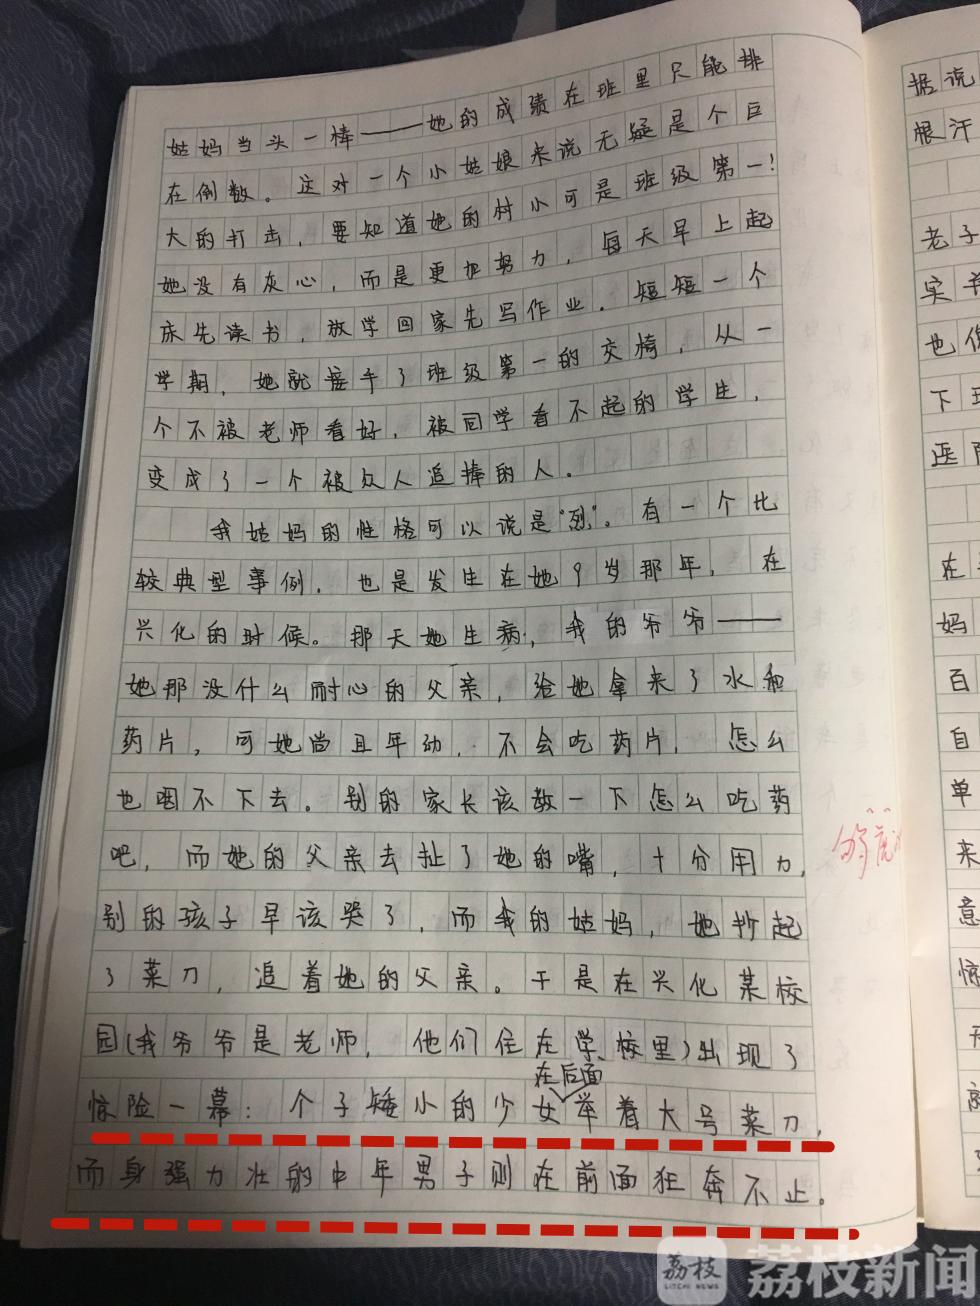 姑妈当头一棒——她的成绩在班里只能排
在倒数。这对一个小姑娘来说无疑是个巨
大的打击，要知道她的村小可是班级第一！
她没有灰心，而是更加努力，每天早上起
床先读书，放学回家先写作业。短短一个
学期，她就接手了班级第一的交椅，从一
个不被老师看好，被同学看不起的学生，
变成了一个被众人追捧的人。
我姑妈的性格可以说是“烈”。有一个比
较典型事例，也是发生在她9岁那年，在
兴化的时候。那天她生病，我的爷爷——
她那没什么耐心的父亲，给她拿来了水和
药片，可她尚且年幼，不会吃药片，怎么
也咽不下去。别的家长该教一下怎么吃药
吧，而她的父亲去扯了她的嘴，十分用力，
别的孩子早该哭了，而我的姑妈，她抄起
了菜刀，追着她的父亲。于是在兴化某校
园(我爷爷是老师，他们住在学校里)出现了
在后面
惊险一幕：个子矮小的少女举着大号菜刀，
而身强力壮的中年男子则在前面狂奔不止。
够
据说
恨汗
老子
实
也
下
医院
在
妈
百
自
单
来
意
惊
荔枝
LITCHI NEWS
荔枝新闻